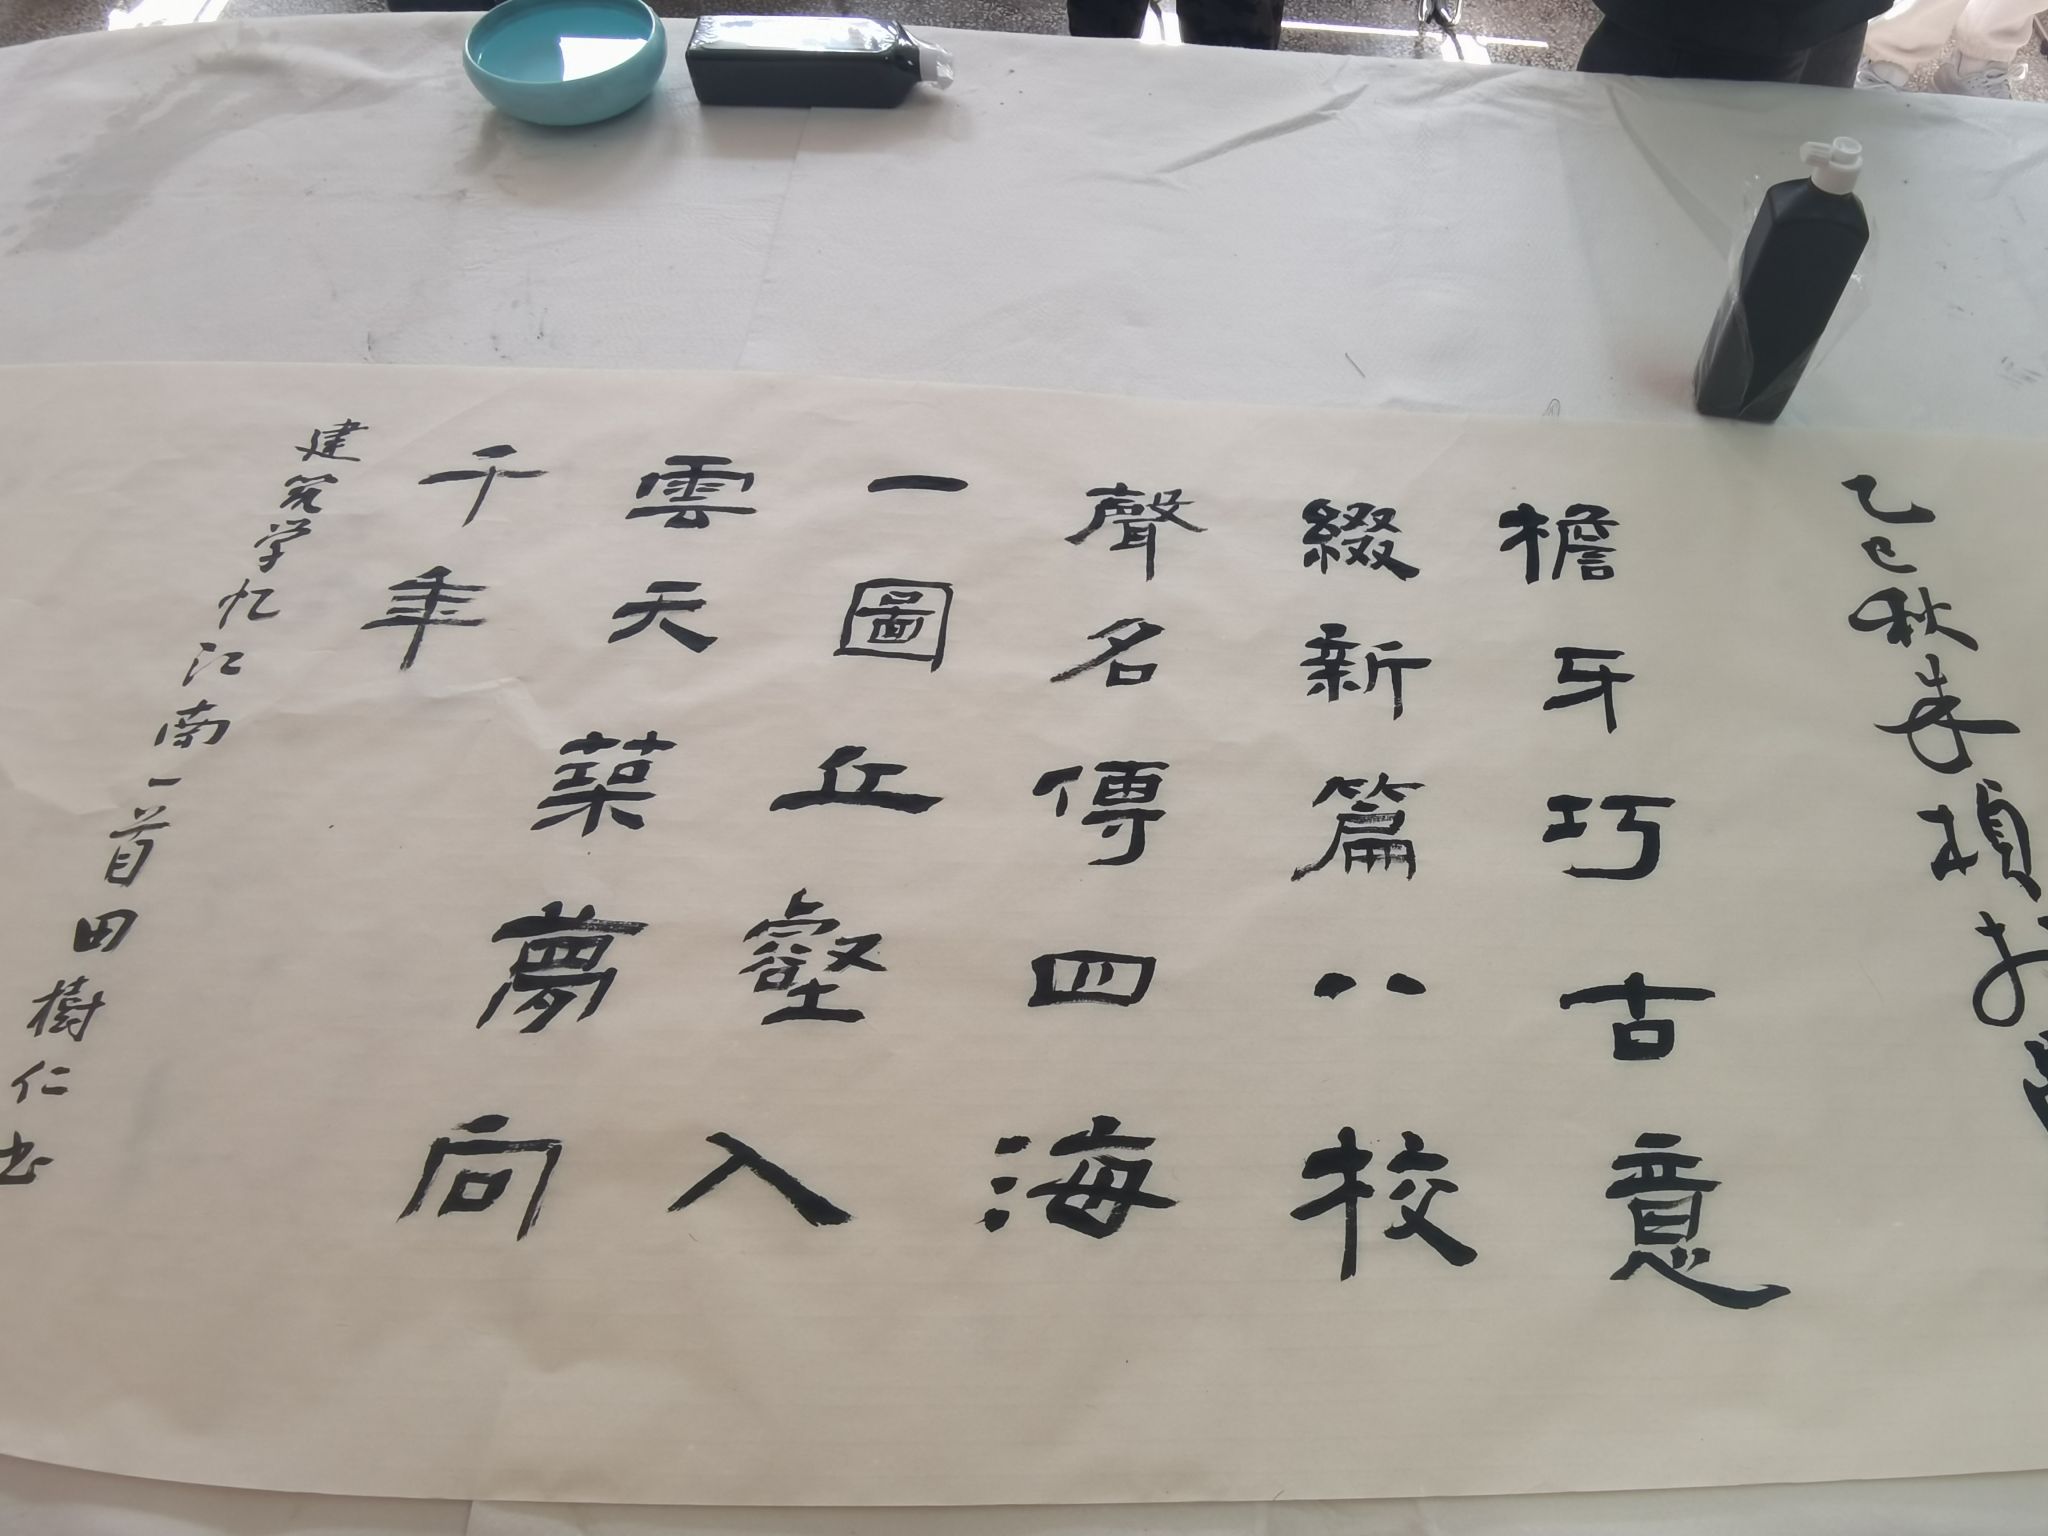 乙巳秋李楨
檐牙巧古意
綴新篇八校
聲名傳四海
一圖丘壑入
雲天築夢向
千年
建筑学忆江南一首田樹仁书